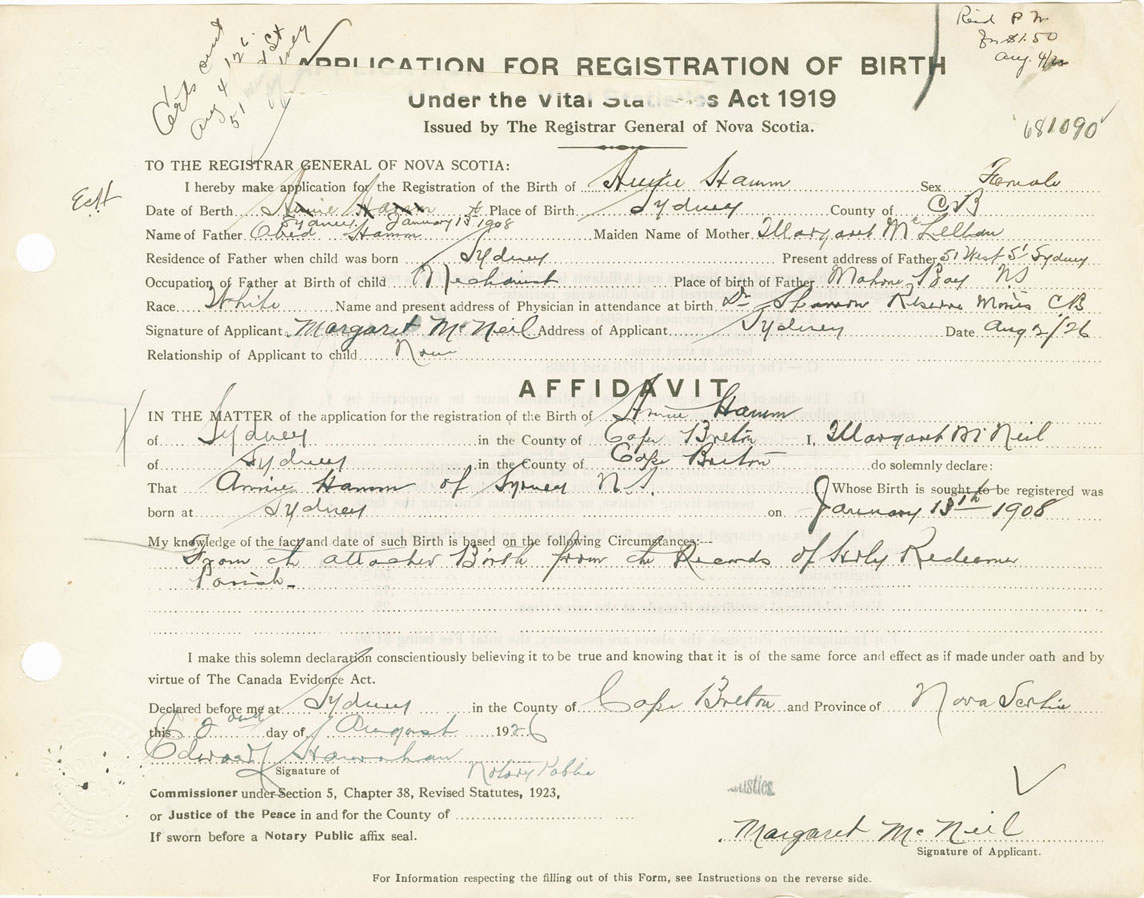 Certs sent
Aug 4/26.
51
Recd P N
for $1.50
Aug. 4/26
APPLICATION FOR REGISTRATION OF BIRTH
Under the Vital Statistics Act 1919
Issued by The Registrar General of Nova Scotia.
681090
TO THE REGISTRAR GENERAL OF NOVA SCOTIA:
I hereby make application for the Registration of the Birth of Annie Hamm Sex Female
Date of Berth Annie Hamm Place of Birth Sydney County of CB
Sydney January 13 1908
Name of Father Obed Hamm Maiden Name of Mother Margaret McLellan
Residence of Father when child was born Sydney Present address of Father 51 West St Sydney
Occupation of Father at Birth of child Place of birth of Father Mahone Bay NS
Race White Name and present address of Physician in attendance at birth Dr Reserve Mines CB
Signature of Applicant Margaret McNeil Address of Applicant Sydney Date Aug 2/26
Relationship of Applicant to child None
AFFIDAVIT
IN THE MATTER of the application for the registration of the Birth of Annie Hamm
of Sydney in the County of Cape Breton I, Margaret McNeil
of Sydney in the County of Cape Breton do solemnly declare:
That Annie Hamm of Sydney N.S. Whose Birth is sought to be registered was
born at Sydney on January 13th 1908
My knowledge of the fact and date of such Birth is based on the following Circumstances:—
From the attached Birth from the Records of Holy Redeemer
Parish.
I make this solemn declaration conscientiously believing it to be true and knowing that it is of the same force and effect as if made under oath and by
virtue of The Canada Evidence Act.
Declared before me at Sydney in the County of Cape Breton and Province of Nova Scotia
this 2nd day of August 1926
Edward Hanrahan
Signature of Notary Public
Commissioner under Section 5, Chapter 38, Revised Statutes, 1923,
or Justice of the Peace in and for the County of
If sworn before a Notary Public affix seal.
Margaret McNeil
Signature of Applicant.
For Information respecting the filling out of this Form, see Instructions on the reverse side.